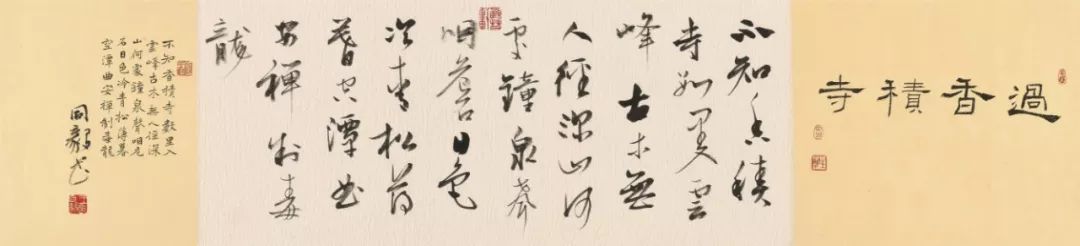 過香積寺
不知香積
寺數里入雲
峰古木無
人徑深山何
處鐘泉聲
咽危石日色
冷青松薄
暮空潭曲
安禪制毒
龍
不知香積寺數里入
雲峰古木無人徑深
山何處鐘泉聲咽危
石日色冷青松薄暮
空潭曲安禪制毒龍
同毅書